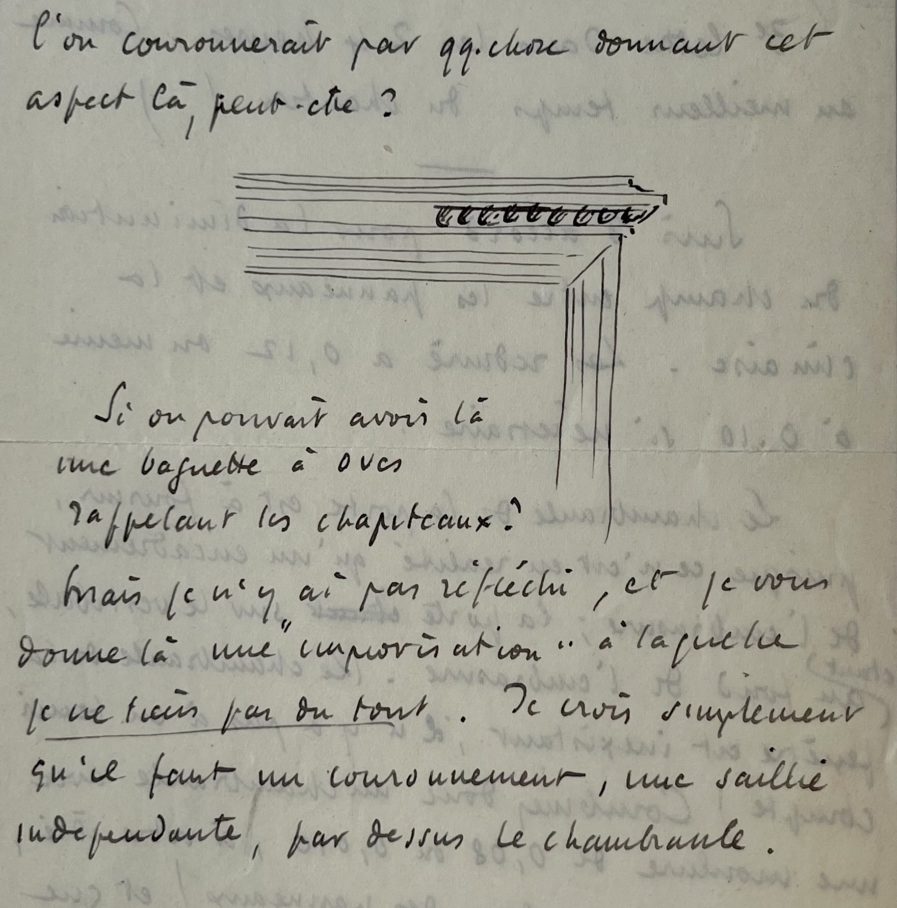 l'on couronnerait par qq. chose donnant cet
aspect là, peut-être ?
Si on pouvait avoir là
une baguette à oves
rappelant les chapiteaux ?
Mais je n'y ai pas réfléchi, et je vous
donne là une "improvisation" à laquelle
je ne tiens pas du tout. Je crois simplement
qu'il faut un couronnement, une saillie
indépendante, par dessus le chambranle.